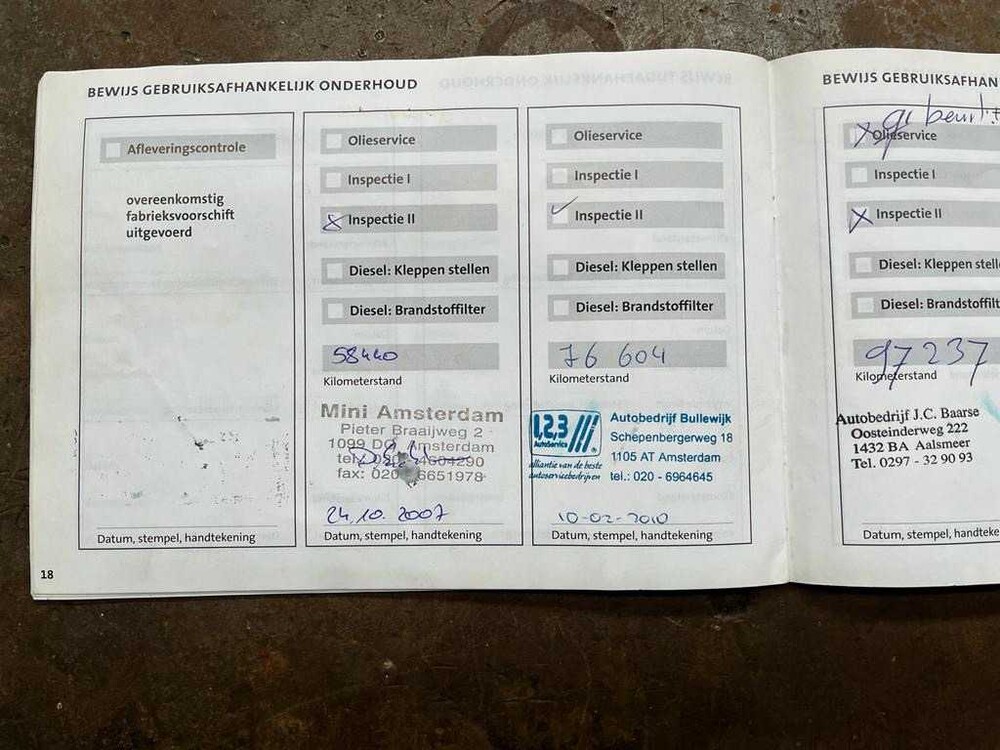 BEWIJS GEBRUIKSAFHANKELIJK ONDERHOUD
Afleveringscontrole
overeenkomstig
fabrieksvoorschift
uitgevoerd
Datum, stempel, handtekening
Olieservice
Inspectie I
Inspectie II
Diesel: Kleppen stellen
Diesel: Brandstoffilter
58440
Kilometerstand
Mini Amsterdam
Pieter Braaijweg 2
1099 DQ Amsterdam
fax: 020 6651978
24.10.2007
Datum, stempel, handtekening
Olieservice
Inspectie I
Inspectie II
Diesel: Kleppen stellen
Diesel: Brandstoffilter
76 604
Kilometerstand
1,2,3
AutoService
alliantie van de beste
autoservicebedrijven
Autobedrijf Bullewijk
Schepenbergerweg 18
1105 AT Amsterdam
tel.: 020 - 6964645
10-02-2010
Datum, stempel, handtekening
18
BEWIJS GEBRUIKSAFHAN
Olieservice
Inspectie I
Inspectie II
Diesel: Kleppen stell
Diesel: Brandstoffilt
97237
Kilometerstand
Autobedrijf J.C. Baarse
Oosteinderweg 222
1432 BA Aalsmeer
Tel. 0297 - 32 90 93
Datum, stempel, handteke